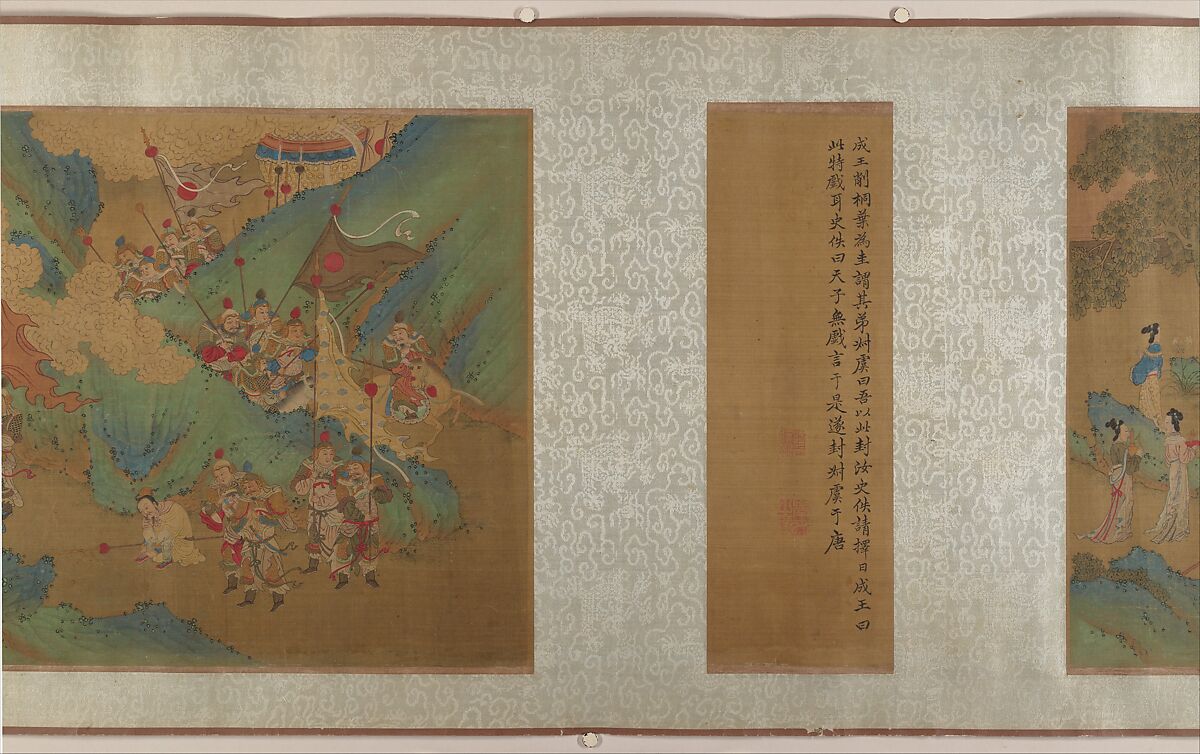 成王削桐葉為圭謂其弟尗虞曰吾以此封汝史佚請擇日成王曰
此特戲耳史佚曰天子無戲言于是遂封尗虞于唐